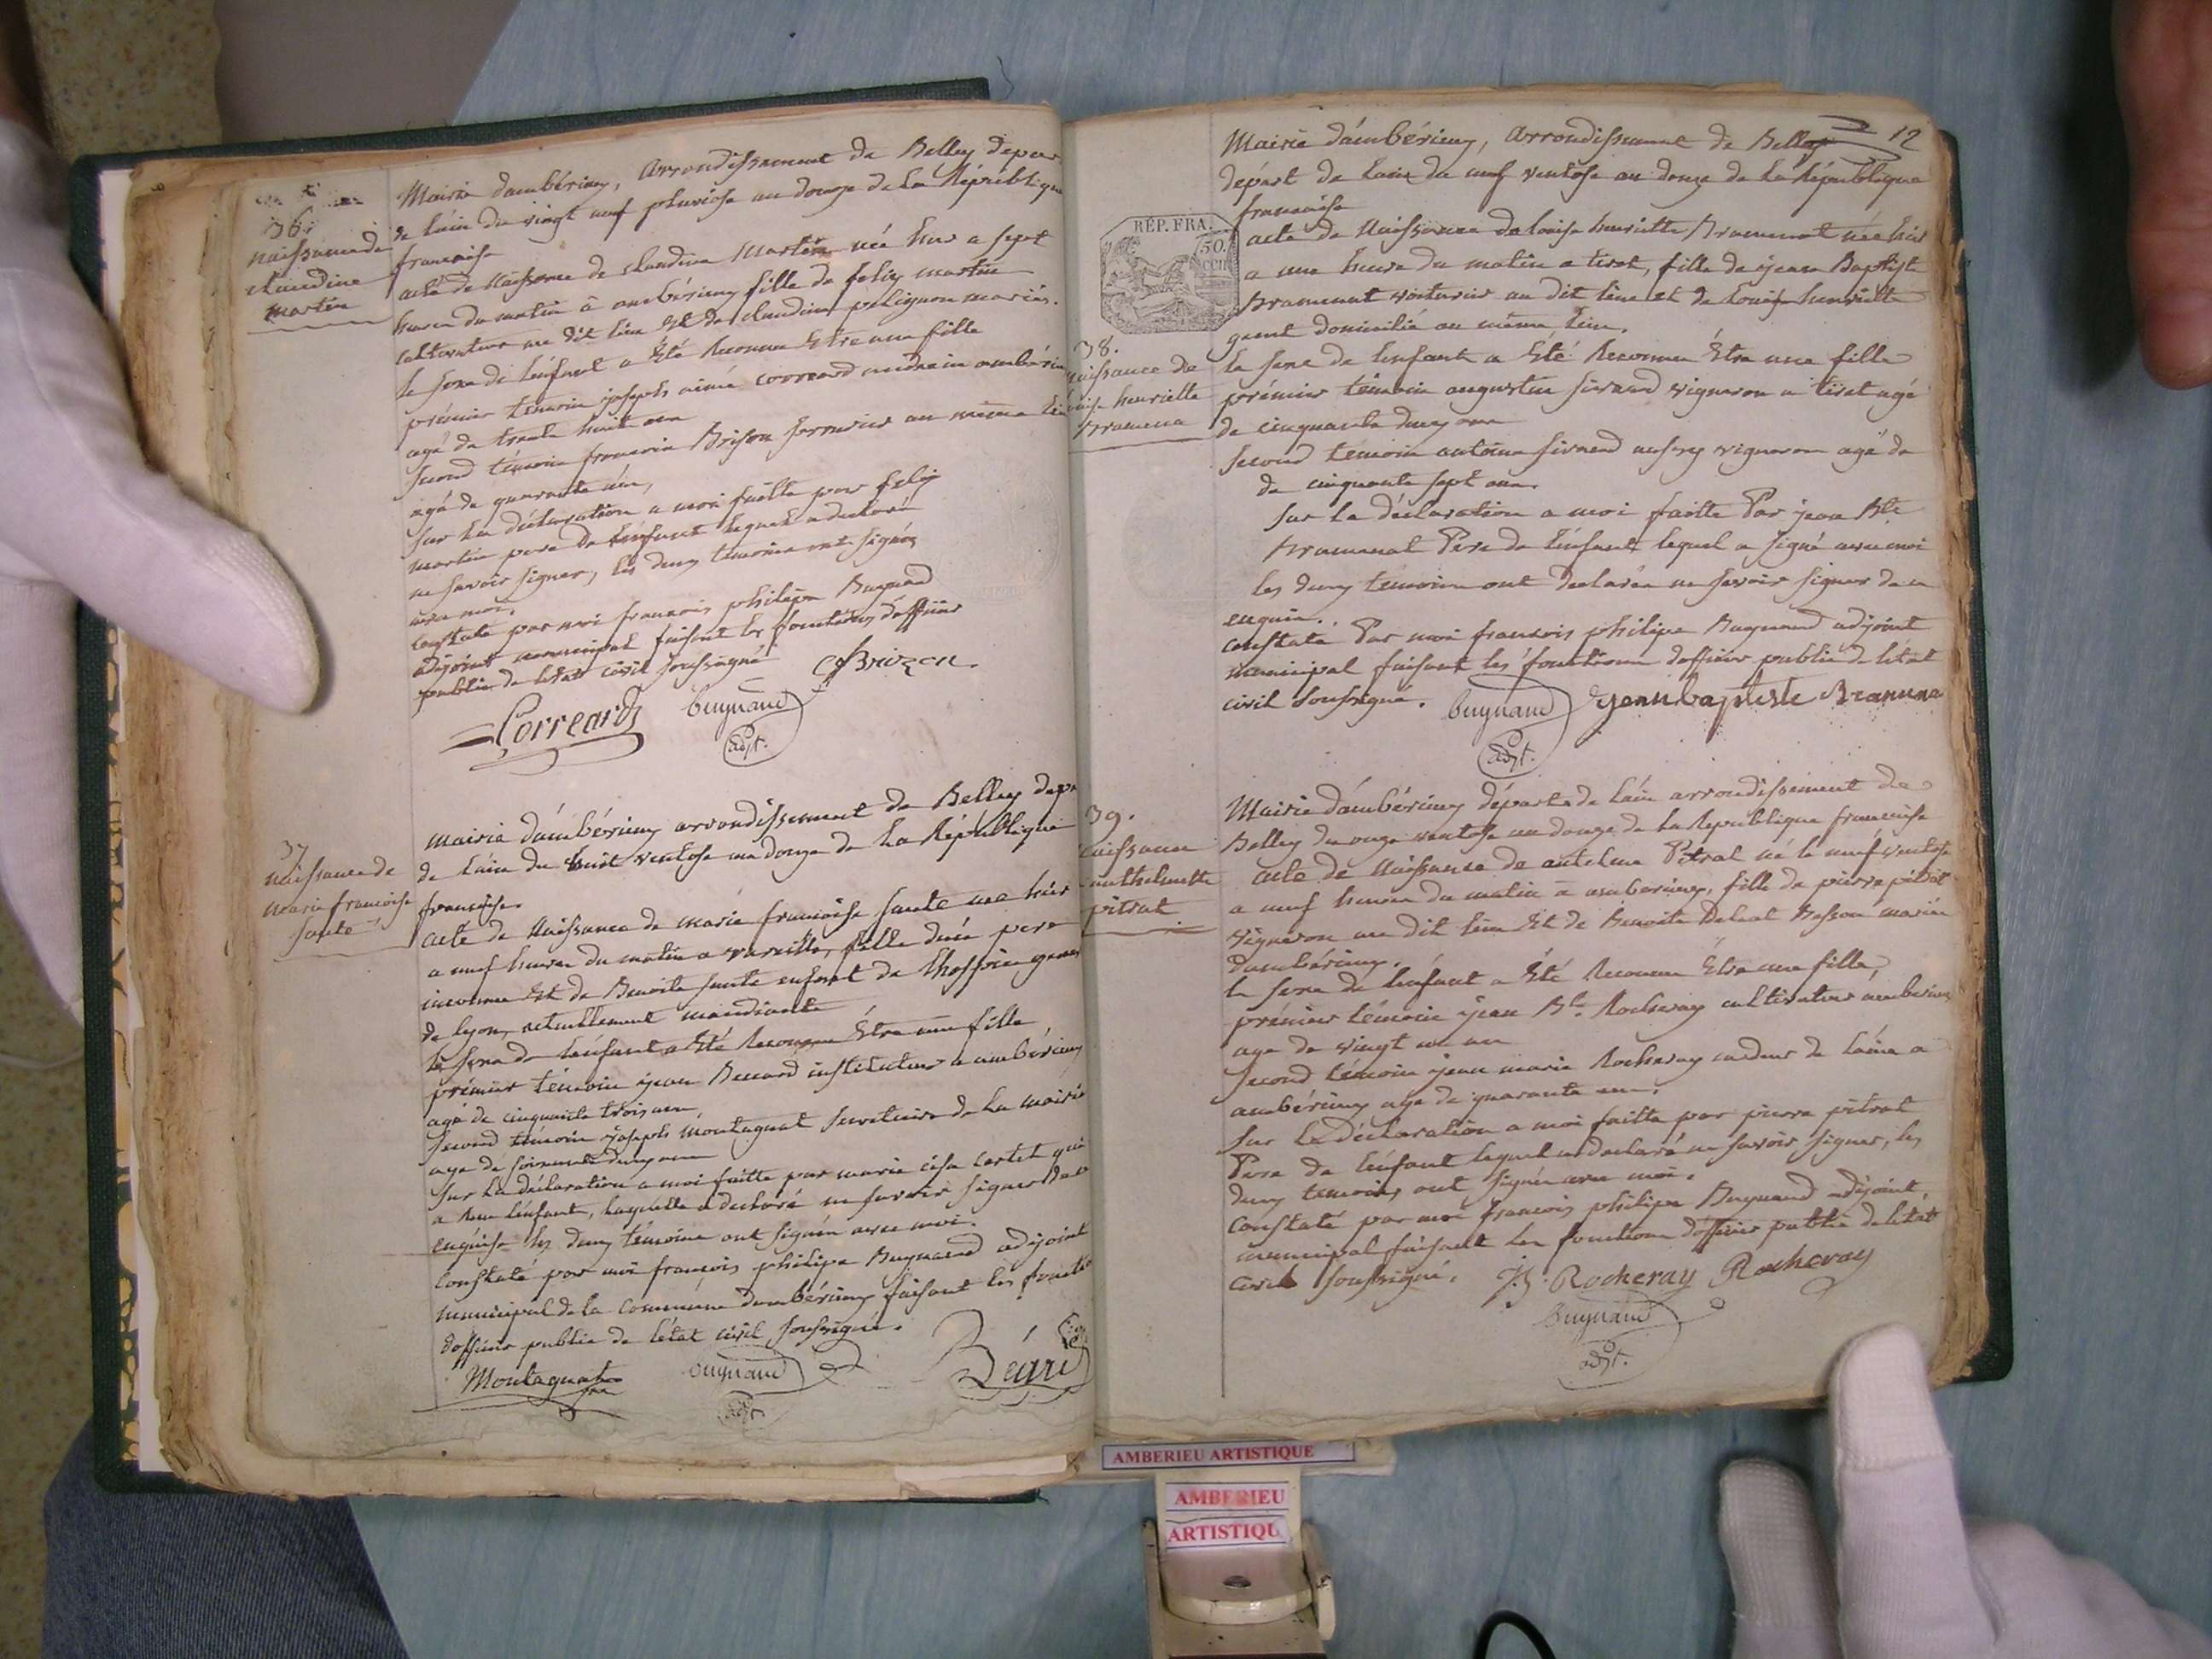 36.
naissance de
claudine
martin
Mairie dambérieux, arrondissement de Belley depar
de lain du vingt neuf pluviose an douze de la République
francaise
acte de naissance de claudine martin née hier a sept
heures du matin à ambérieux fille de felix martin
cultivateur au dit lieu et de claudine polignon mariés.
le sexe de lénfant a été reconnu être une fille
prémier témoin joseph aimé correard
agé de trente huit ans
second témoin francois Brison serrurier au même lieu
agé de quarante un,
sur la déclaration a moi faitte par felix
martin pere de lénfant lequel a declaré
ne savoir signer, les deux témoins ont signés
avec moi.
constaté par moi francois philipe Buynand
adjoint municipal faisant les fonctions dofficier
public de létat civil soussigné
Brizon.
Correard Buynand
adjt.
37
naissance de
marie francoise
sante
mairie dámbérieux arrondissement de Belley depar
de láin du huit ventose an douze de la République
francaise.
acte de naissance de marie francoise sante née hier
a neuf heures du matin a vareille, fille dún pere
inconnu et de Benoite sante enfant de lhospice
de lyon, actuellement mandiante
le sexe de lénfant a été reconnu être une fille
prémier témoin jean Beccard instituteur a ambérieux
agé de cinquante trois ans
second témoin joseph montagnat secretaire de la mairie
age de soixante deux ans
sur la déclaration a moi faitte par marie
a lénfant, laquelle a declaré ne savoir signer de ce
enquise les deux témoins ont signés avec moi.
constaté par moi francois philipe Buynand adjoint
municipal de la commune dambérieux faisant les
dofficier public de létat civil soussigné.
Montagnat Buynand
adjt.
12
Mairie dámbérieux, arrondissement de Belley
départ de lain du neuf ventose an douze de la République
francaise
REP. FRA.
50.
acte de naissance de louise henriette Bramenat née hier
a une heure du matin a tiret, fille de jean Baptiste
Bramenat voiturier au dit lieu et de louise henriette
domicilié au même lieu.
38.
naissance de
henriette
Bramena
le sexe de lenfant a été reconnu être une fille
prémier témoin augustin sivrand vigneron a tiret agé
de cinquante deux ans
second témoin antoine sivrand vigneron agé de
de cinquante sept ans.
sur la déclaration a moi faitte Par jean Bte
Bramenat Pere de lénfant lequel a signé avec moi
les deux témoins ont declarés ne savoir signer de ce
enquis.
constaté Par moi francois philipe Buynand adjoint
municipal faisant les fonctions dofficier public de létat
civil soussigné. Buynand Jeanbaptiste Bramena
adjt.
39.
naissance
anthelmette
pitrat
Mairie dámbérieux départ de láin arrondissement de
Belley du onze ventose an douze de la République francaise
acte de naissance de antelme Pitrat né le neuf ventose
a neuf heures du matin a amberieux, fille de pierre pitrat
vigneron au dit lieu et de Benoite mariés
dambérieux.
le sexe de lénfant a été reconnu être une fille,
prémier témoin jean Bte Rocheray cultivateur
age de vingt un ans
second témoin jean marie Rocheray cardeur de laine a
ambérieux age de quarante ans.
sur la déclaration a moi faitte par pierre pitrat
Pere de lénfant lequel a declaré ne savoir signer, les
deux temoins ont signés avec moi.
constaté par moi francois philipe Buynand adjoint
municipal faisant les fonctions dofficier public de létat
civil soussigné. J.B. Rocheray Rocheray
Buynand
adjt.
AMBERIEU ARTISTIQUE
AMBERIEU
ARTISTIQU